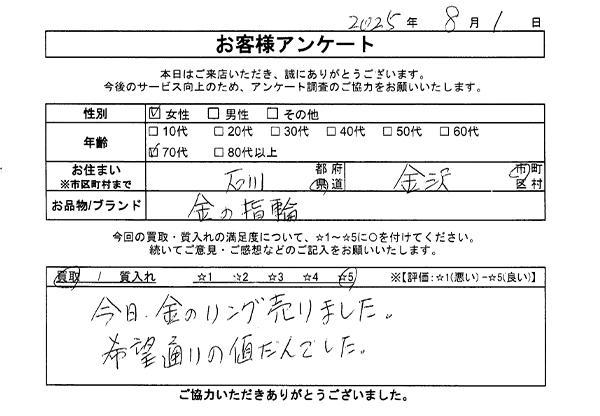 2025年 8月 1日
お客様アンケート
本日はご来店いただき、誠にありがとうございます。
今後のサービス向上のため、アンケート調査のご協力をお願いいたします。
性別 ☑女性 □男性 □その他
年齢 □10代 □20代 □30代 □40代 □50代 □60代
☑70代 □80代以上
お住まい 石川 都府県道 金沢 市町区村
※市区町村まで
お品物/ブランド 金の指輪
今回の買取・質入れの満足度について、☆1~☆5に○を付けてください。
続いてご意見・ご感想などのご記入をお願いいたします。
買取 / 質入れ ☆1 ☆2 ☆3 ☆4 ☆5 ※【評価:☆1(悪い)-☆5(良い)】
今日、金のリング売りました。
希望通りの値だんでした。
ご協力いただきありがとうございました。